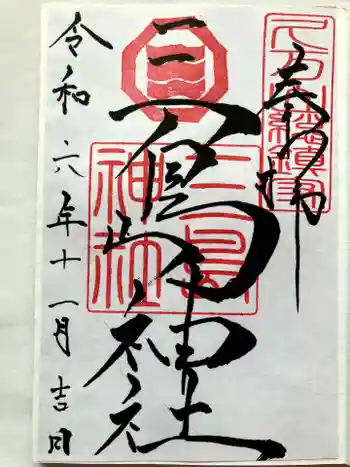 奉拝
三嶋神社
三島
神社
令和六年十一月吉日